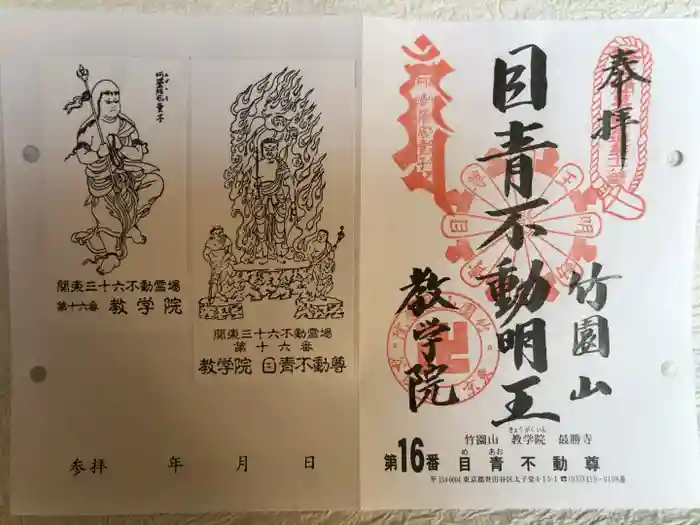 関東三十六不動霊場
第十六番 教学院
関東三十六不動霊場
第十六番
教学院 目青不動尊
参拝 年 月 日
奉拝
竹園山
目青不動明王
教学院
竹園山 教学院 最勝寺
きょうがくいん
第16番 目青不動尊
め あお
〒154-0004 東京都世田谷区太子堂4-15-1